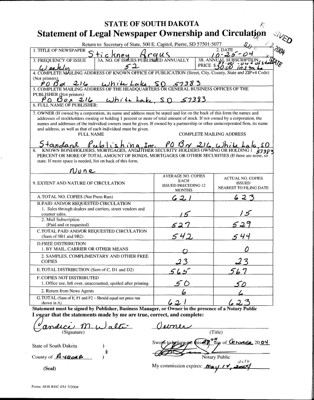 STATE OF SOUTH DAKOTA
Statement of Legal Newspaper Ownership and Circulation
Return to: Secretary of State, 500 E. Capitol, Pierre, SD 57501-5077
1. TITLE OF NEWSPAPER Stickney Argus 2. DATE 10-25-04
3. FREQUENCY OF ISSUE Weekly 3A. NO. OF ISSUES PUBLISHED ANNUALLY 52 3B. ANNUAL SUBSCRIPTION PRICE
4. COMPLETE MAILING ADDRESS OF KNOWN OFFICE OF PUBLICATION (Street, City, County, State and ZIP+4 Code) (Not printers)
PO Box 216 White Lake SD 57383
5. COMPLETE MAILING ADDRESS OF THE HEADQUARTERS OR GENERAL BUSINESS OFFICES OF THE PUBLISHER (Not printers)
PO Box 216 White Lake, SD 57383
6. FULL NAME OF PUBLISHER:
7. OWNER (If owned by a corporation, its name and address must be stated and list on the back of this form the names and
addresses of stockholders owning or holding 1 percent or more of total amount of stock. If not owned by a corporation, the
names and addresses of the individual owners must be given. If owned by a partnership or other unincorporated firm, its name
and address, as well as that of each individual must be given.
FULL NAME COMPLETE MAILING ADDRESS
Standard Publishing Inc. PO Box 216 White Lake, SD 57383
8. KNOWN BONDHOLDERS, MORTGAGES, AND OTHER SECURITY HOLDERS OWNING OR HOLDING 1
PERCENT OR MORE OF TOTAL AMOUNT OF BONDS, MORTGAGES OR OTHER SECURITIES (If there are none, so
state. If more space is needed, list on back of this form.
None
9. EXTENT AND NATURE OF CIRCULATION AVERAGE NO. COPIES EACH ISSUED PRECEDING 12 MONTHS ACTUAL NO. COPIES ISSUED NEAREST TO FILING DATE
A. TOTAL NO. COPIES (Net Press Run) 621 623
B. PAID AND/OR REQUESTED CIRCULATION
1. Sales through dealers and carriers, street vendors and counter sales. 15 15
2. Mail Subscription (Paid and or requested) 527 529
C. TOTAL PAID AND/OR REQUESTED CIRCULATION (Sum of 9B1 and 9B2) 542 544
D. FREE DISTRIBUTION
1. BY MAIL, CARRIER OR OTHER MEANS 0 0
2. SAMPLES, COMPLIMENTARY AND OTHER FREE COPIES 23 23
E. TOTAL DISTRIBUTION (Sum of C, D1 and D2) 565 567
F. COPIES NOT DISTRIBUTED
1. Office use, left over, unaccounted, spoiled after printing 50 50
2. Return from News Agents 6 6
G. TOTAL (Sum of E, F1 and F2 - Should equal net press run shown in A) 621 623
Statement must be signed by Publisher, Business Manager, or Owner in the presence of a Notary Public
I swear that the statements made by me are true, correct, and complete:
Candice M. Walter Owner
(Signature) (Title)
State of South Dakota )
County of Aurora )
Notary Public
(Seal) My commission expires: